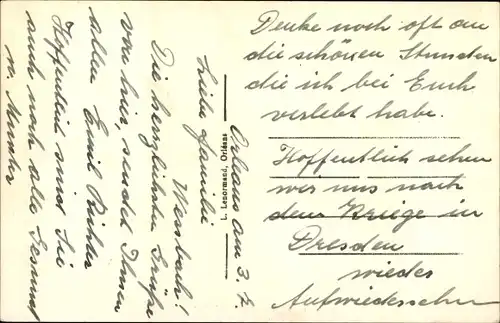 Orleans am 3. 7.
Liebe Familie
Wersbach!
Die herzlichsten Grüße
von hier, sendet Ihnen
allen Emil Richter
Hoffentlich sind Sie
auch noch alle Gesund
u. Munter
L. Lenormand, Orléans
Denke noch oft an
die schönen Stunden
die ich bei Euch
verlebt habe.
Hoffentlich sehen
wir uns nach
dem Kriege in
Dresden
wieder
Aufwiedersehn